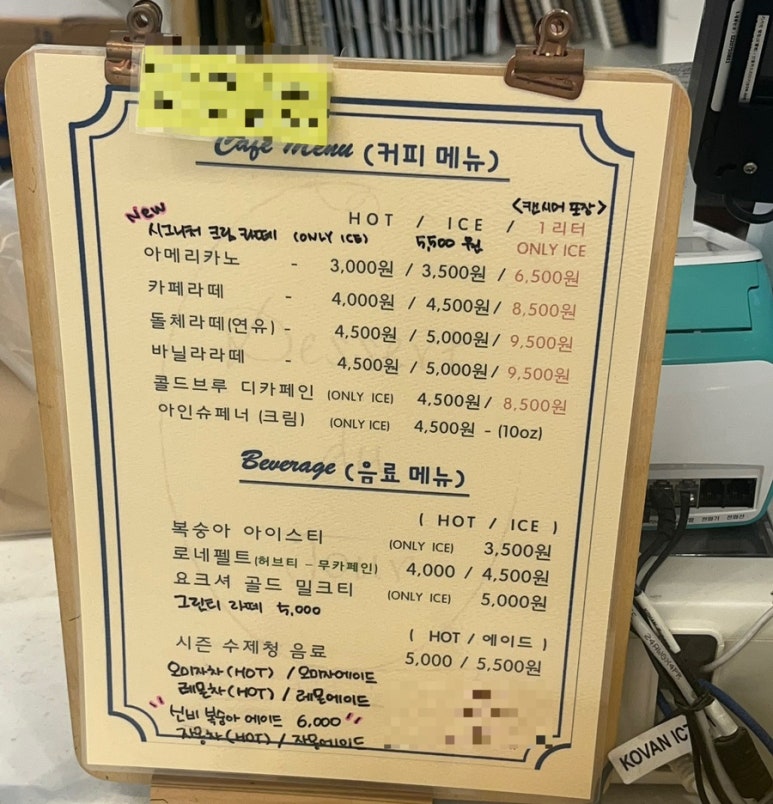 Cafe Menu (커피 메뉴)
<캔시머 포장>
HOT / ICE / 1 리터
New
시그니처 크림 라떼 (ONLY ICE) 5,500 원 ONLY ICE
아메리카노 - 3,000원 / 3,500원 / 6,500원
카페라떼 - 4,000원 / 4,500원/ 8,500원
돌체라떼(연유) - 4,500원 / 5,000원/ 9,500원
바닐라라떼 - 4,500원 / 5,000원/ 9,500원
콜드브루 디카페인 (ONLY ICE) 4,500원/ 8,500원
아인슈페너 (크림) (ONLY ICE) 4,500원 - (10oz)
Beverage (음료 메뉴)
( HOT / ICE )
복숭아 아이스티 (ONLY ICE) 3,500원
로네펠트(허브티 - 무카페인) 4,000 / 4,500원
요크셔 골드 밀크티 (ONLY ICE) 5,000원
그린티 라떼 5,000
( HOT / 에이드 )
시즌 수제청 음료 5,000 / 5,500원
오미자차(HOT) / 오미자에이드
레몬차(HOT) / 레몬에이드
"선비 복숭아 에이드 6,000"
자몽차(HOT) / 자몽에이드
KOVAN IC